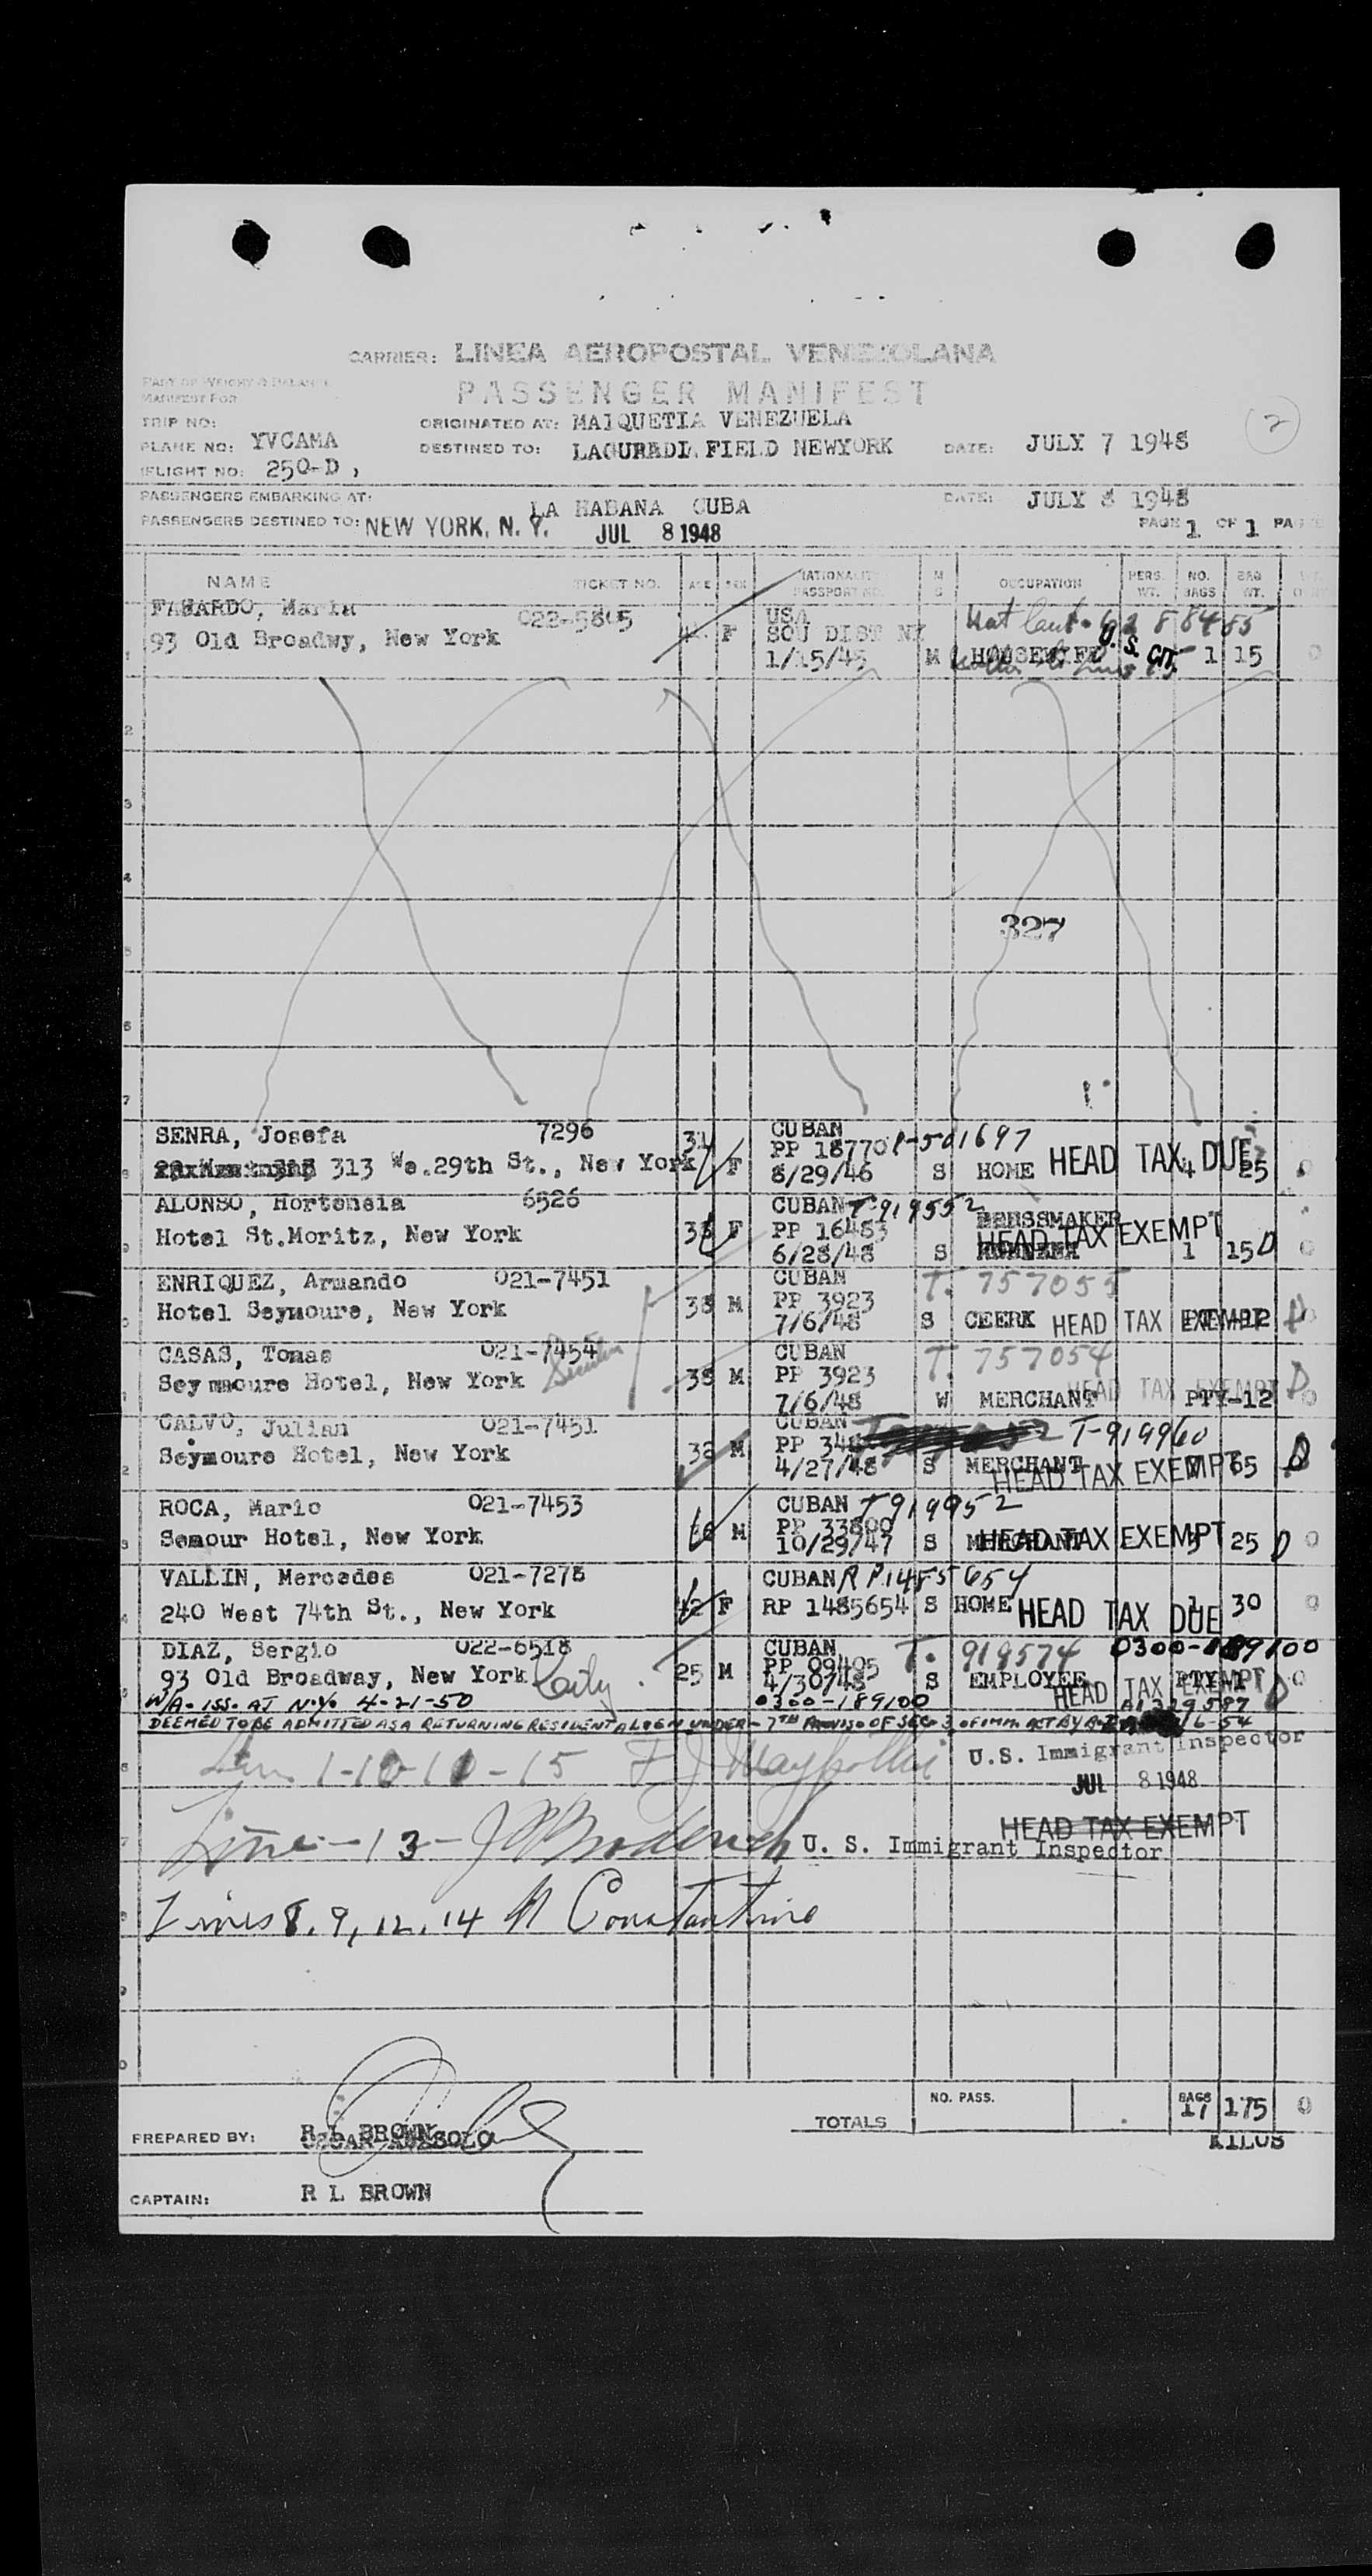 CARRIER: LINEA AEROPOSTAL VENEZOLANA
PART OF WEIGHT & BALANCE
MANIFEST FOR
PASSENGER MANIFEST
TRIP NO:
ORIGINATED AT: MAIQUETIA VENEZUELA
2
PLANE NO: YVCAMA
DESTINED TO: LAGURRDIA FIELD NEWYORK DATE: JULY 7 1948
FLIGHT NO: 250-D ,
PASSENGERS EMBARKING AT: LA HABANA CUBA DATE: JULY 8 1948
PASSENGERS DESTINED TO: NEW YORK, N. Y. JUL 8 1948 PAGE 1 OF 1
NAME TICKET NO. AGE SEX NATIONALITY PASSPORT NO. M S OCCUPATION PERS. WT. NO. BAGS BAG WT.
FAHARDO, Maria 022-5865 USA
93 Old Broadwy, New York F SOU DIST NY U.S. CIT.
1 1/15/45 M HOUSEWIFE 1 15 0
2
3
4
327
5
6
7
SENRA, Josefa 7296 31 CUBAN
313 We.29th St., New York F PP 18770 P-501697 HEAD TAX DUE
8/29/46 S HOME 4 25
ALONSO, Hortensia 6526 CUBAN T-919552
Hotel St.Moritz, New York 33 F PP 16483 DRESSMAKER
6/28/48 S HEAD TAX EXEMPT 1 15 D 0
ENRIQUEZ, Armando 021-7451 CUBAN T. 757055
Hotel Seymoure, New York 38 M PP 3923
7/6/48 S CEERK HEAD TAX EXEMPT D
CASAS, Tomas 021-7454 CUBAN T. 757054
Seymaoure Hotel, New York 38 M PP 3923
7/6/48 W MERCHANT HEAD TAX EXEMPT PTY-12 D
CALVO, Julian 021-7451 CUBAN T-919960
Seymoure Hotel, New York 32 M
4/27/48 S MERCHANT HEAD TAX EXEMPT 65 D
ROCA, Mario 021-7453 CUBAN T919952
Semour Hotel, New York M PP 33800
10/29/47 S MERCHANT HEAD TAX EXEMPT 25 D 0
VALLIN, Mercedes 021-7278 CUBAN R P.1485654
240 West 74th St., New York 42 F RP 1485654 S HOME HEAD TAX DUE 30 0
DIAZ, Sergio 022-6518 CUBAN T. 919574 0300-189100
93 Old Broadway, New York 25 M PP 09405
4/30/48 S EMPLOYEE HEAD TAX EXEMPT D 0
W/A. ISS. AT N.Y. 4-21-50 0300-189100
DEEMED TO BE ADMITTED AS A RETURNING RESIDENT ALIEN UNDER 7TH PROVISO OF SEC. 3 OF IMM. ACT
1-10-11-15 U.S. Immigrant Inspector
JUL 8 1948
HEAD TAX EXEMPT
Line-13- U. S. Immigrant Inspector
Lines 8, 9, 12, 14 Constantine
NO. PASS. BAGS
TOTALS 17 175 0
KILOS
PREPARED BY: R L BROWN
CAPTAIN: R L BROWN